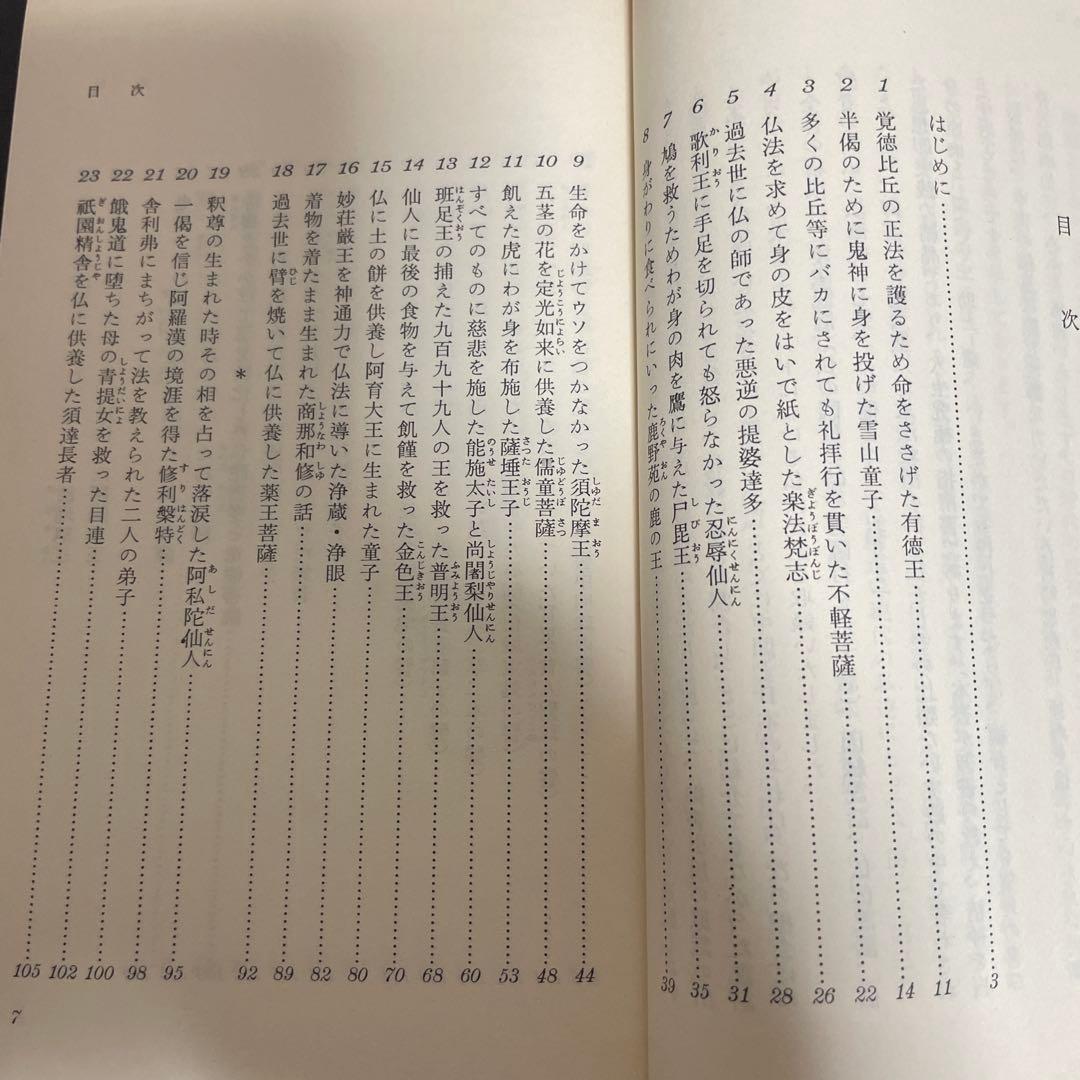 目次
はじめに……3
1 覚徳比丘の正法を護るため命をささげた有徳王……11
2 半偈のために鬼神に身を投げた雪山童子……14
3 多くの比丘等にバカにされても礼拝行を貫いた不軽菩薩……22
4 仏法を求めて身の皮をはいで紙とした楽法梵志……26
ぎようぼうぼんじ
5 過去世に仏の師であった悪逆の提婆達多……28
6 歌利王に手足を切られても怒らなかった忍辱仙人……31
かりおう にんにくせんにん
7 鳩を救うためわが身の肉を鷹に与えた尸毘王……35
しびおう
8 身がわりに食べられにいった鹿野苑の鹿の王……39
ろくやおん
目次
9 生命をかけてウソをつかなかった須陀摩王……44
しゆだまおう
10 五茎の花を定光如来に供養した儒童菩薩……48
じようこうによらい じゆどうぼさつ
11 飢えた虎にわが身を布施した薩埵王子……53
さつたおうじ
12 すべてのものに慈悲を施した能施太子と尚闍梨仙人……60
のうせたいし しようじやりせんにん
13 班足王の捕えた九百九十九人の王を救った普明王……68
はんぞくおう ふみようおう
14 仙人に最後の食物を与えて飢饉を救った金色王……70
こんじきおう
15 仏に土の餅を供養し阿育大王に生まれた童子……80
16 妙荘厳王を神通力で仏法に導いた浄蔵・浄眼……82
17 着物を着たまま生まれた商那和修の話……89
しようなわしゆ
18 過去世に臂を焼いて仏に供養した薬王菩薩……92
ひじ
＊
19 釈尊の生まれた時その相を占って落涙した阿私陀仙人……95
あしだせんにん
20 一偈を信じ阿羅漢の境涯を得た修利槃特……98
すりはんどく
21 舎利弗にまちがって法を教えられた二人の弟子……100
22 餓鬼道に堕ちた母の青提女を救った目連……102
しようだいによ
23 祇園精舎を仏に供養した須達長者……105
ぎおんしようじや
7